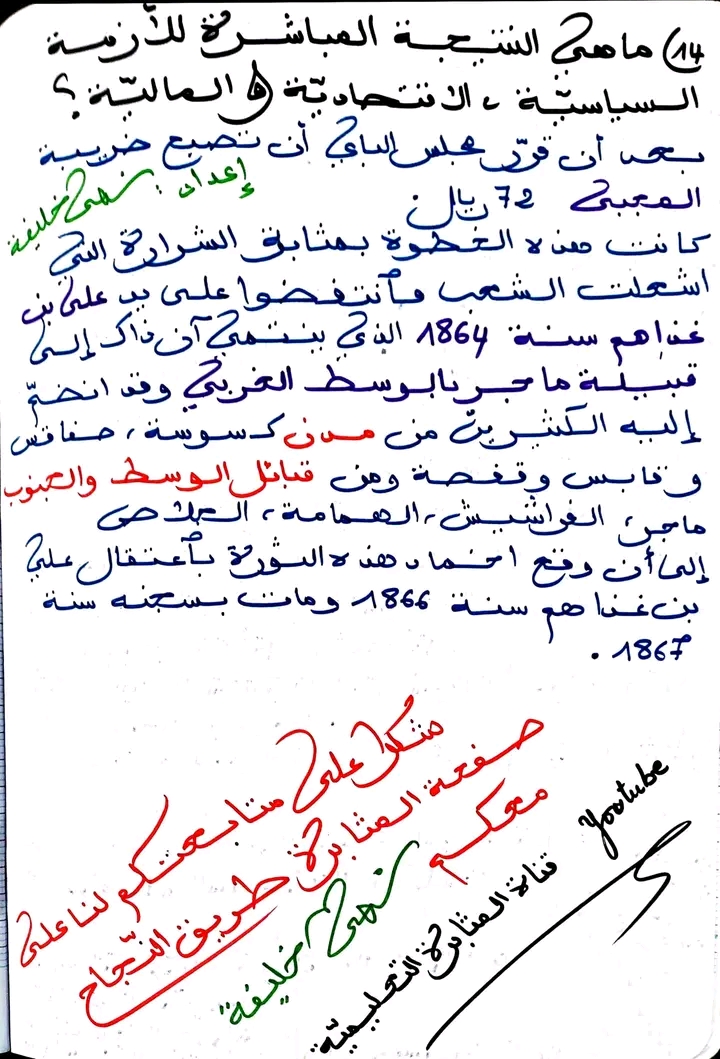 14) ماهي النتيجة المباشرة للأزمة
السياسيّة، الاقتصاديّة والماليّة؟
بعد أن قرّر مجلس الباي أن تصبح ضريبة
المجبى 72 ريال.
إعداد: نهى خليفة
كانت هذه الخطوة بمثابة الشرارة التي
اشعلت الشعب فأنتفضوا على يد علي بن
غذاهم سنة 1864 الذي ينتمي آن ذاك إلى
قبيلة ماجر بالوسط الغربي وقد انضمّ
إليه الكثيرين من مدن كسوسة، صفاقس
وقابس وقفصة ومن قبائل الوسط والجنوب
ماجر، الفراشيش، الهمامة، الجلاص
إلى أن وقع اخماد هذه الثورة بأعتقال علي
بن غذاهم سنة 1866 ومات بسجنه سنة
1867.
شكرا على متابعتكم لنا على
صفحة المثابرة طريق النّجاح
معكم نهى خليفة
قناة المثابرة التعليميّة Youtube